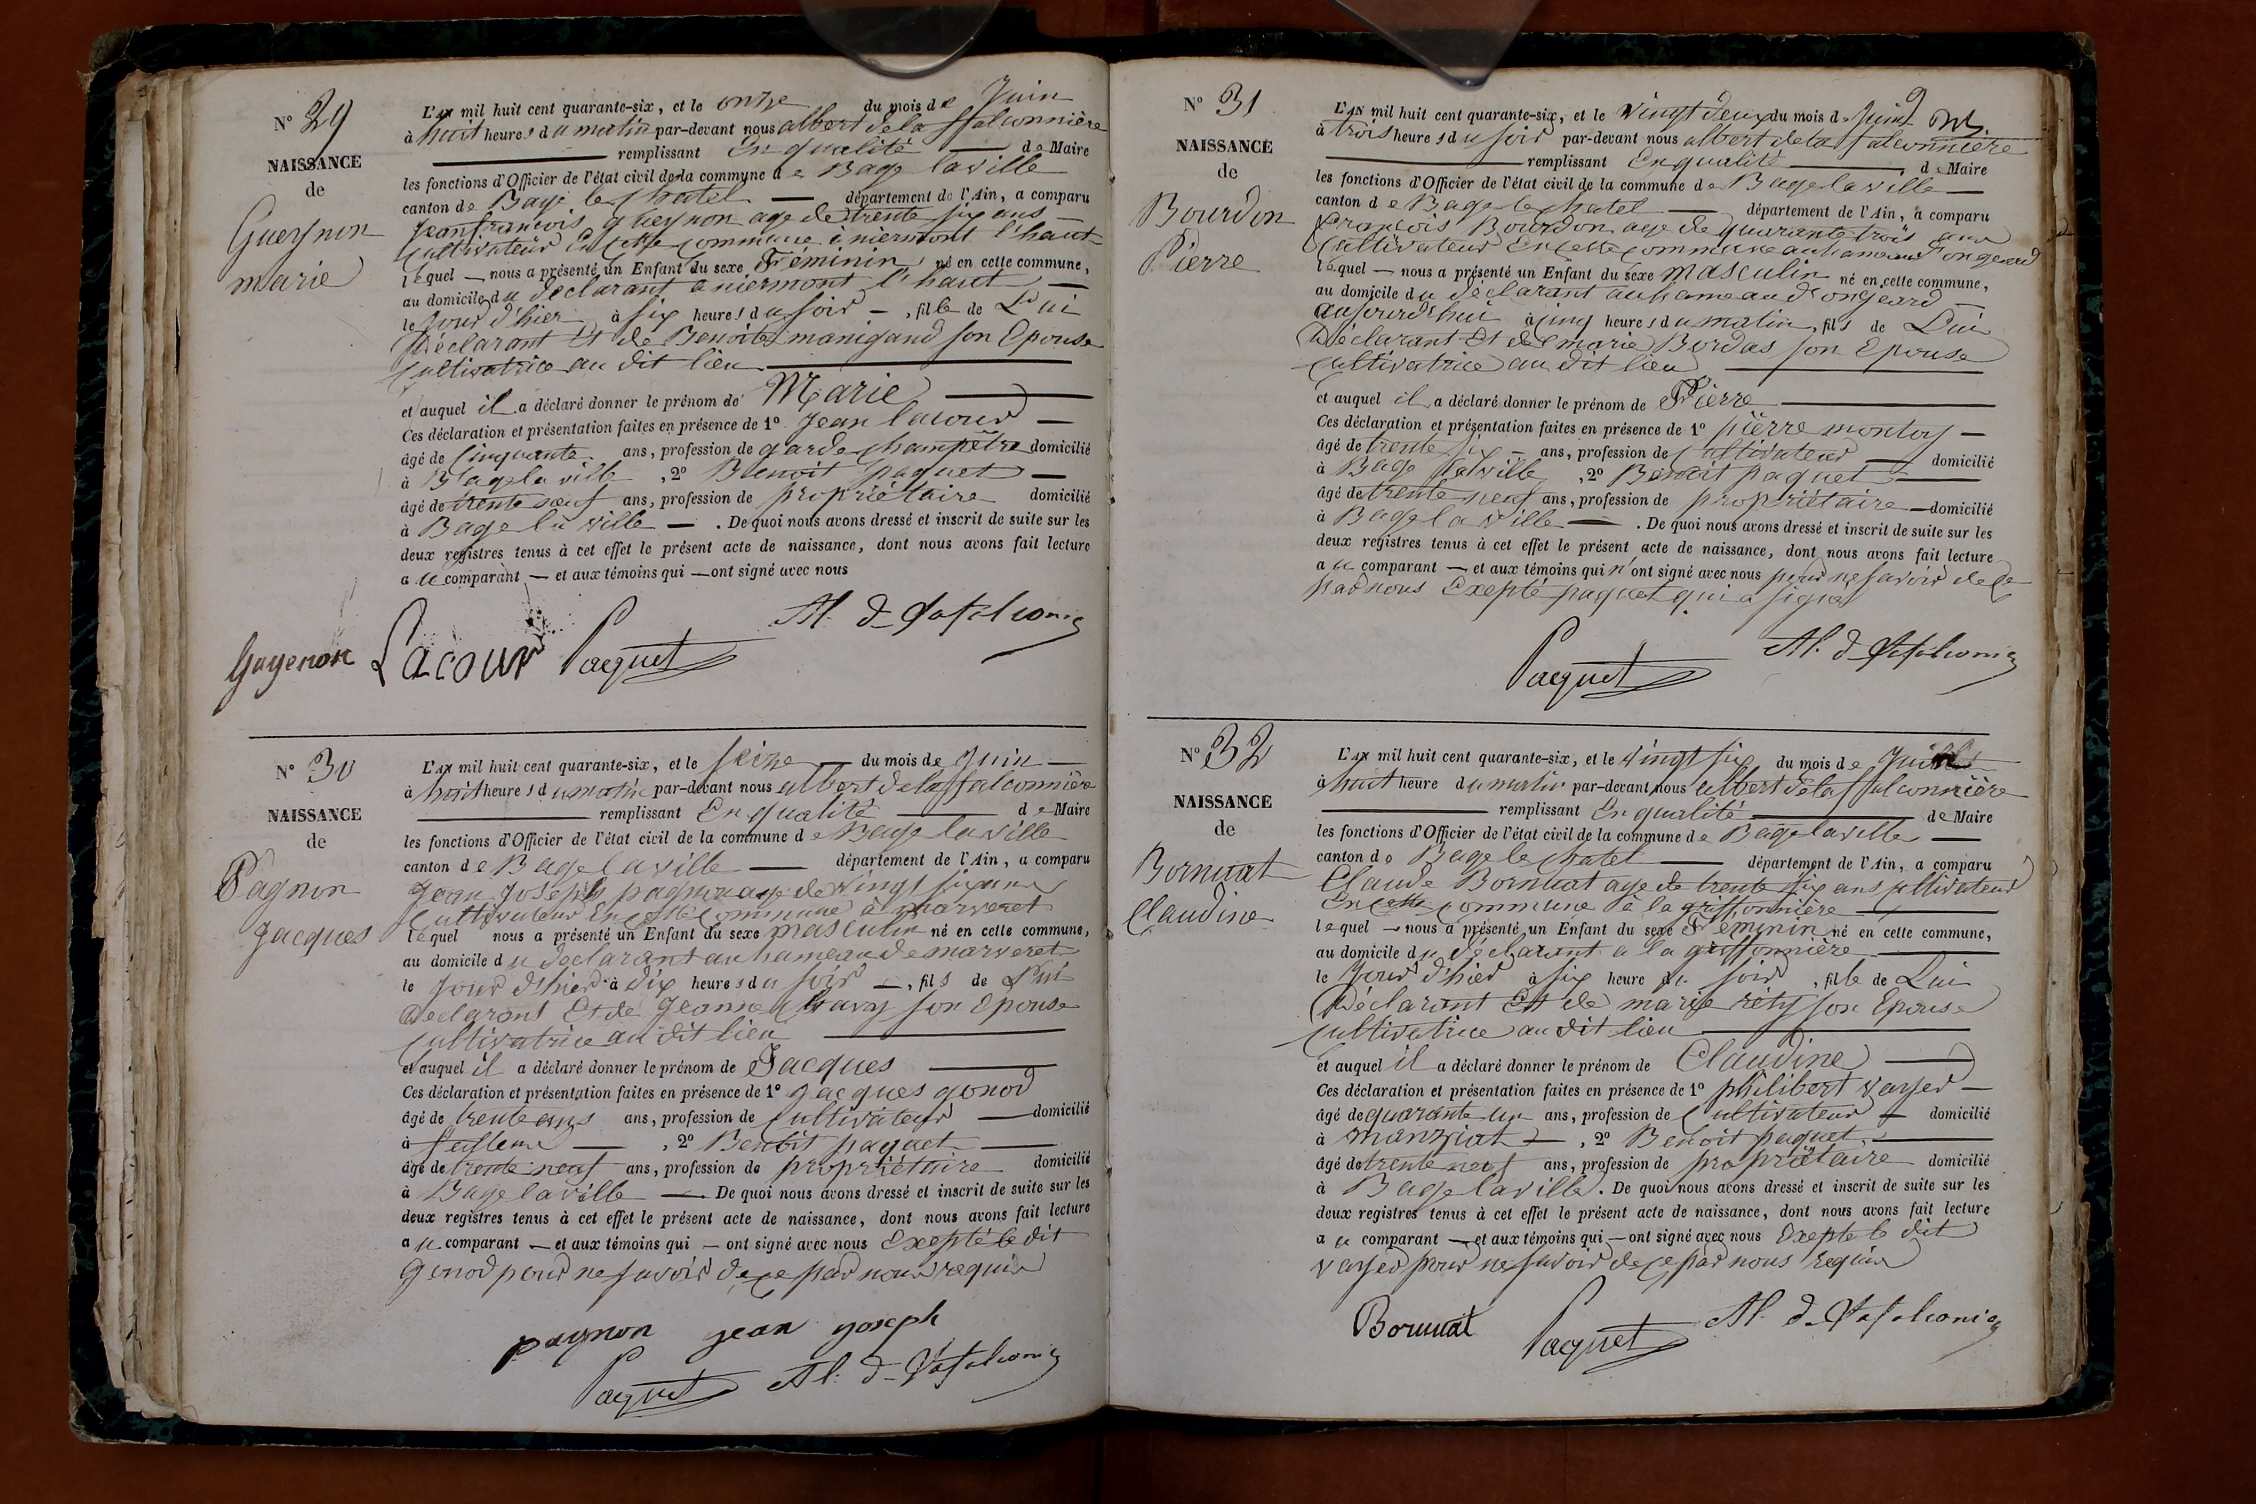 N° 29
NAISSANCE
de
Gueynon
marie
L'AN mil huit cent quarante-six, et le onze du mois de Juin
à huit heures du matin par-devant nous albert de la ffalconnière
remplissant En qualité de Maire
les fonctions d'Officier de l'état civil de la commune de Bage laville
canton de Bage le chatel département de l'Ain, a comparu
Jean francois gueynon age de trente six ans
Cultivateur En cette Commune à niermont l'haut
lequel nous a présenté un Enfant du sexe Féminin né en cette commune,
au domicile du déclarant a niermont l'haut
le Jour d'hier à six heures du soir, fille de Lui
Déclarant Et de Benoite manigand son Epouse
Cultivatrice au dit lieu
et auquel il a déclaré donner le prénom de Marie
Ces déclaration et présentation faites en présence de 1° Jean lacour
âgé de Cinquante ans, profession de garde champêtre domicilié
à Bage la ville, 2° Benoit paquet
âgé de trente neuf ans, profession de propriétaire domicilié
à Bage la ville. De quoi nous avons dressé et inscrit de suite sur les
deux registres tenus à cet effet le présent acte de naissance, dont nous avons fait lecture
au comparant et aux témoins qui ont signé avec nous
Guyenon Lacour Pacquet Al. d
N° 30
NAISSANCE
de
Pagnon
Jacques
L'AN mil huit cent quarante-six, et le seize du mois de Juin
à huit heures du matin par-devant nous albert de la ffalconnière
remplissant En qualité de Maire
les fonctions d'Officier de l'état civil de la commune de Bage la ville
canton de Bage la ville département de l'Ain, a comparu
Jean Joseph pagnon age de vingt six ans
Cultivateur En cette Commune à marveret
lequel nous a présenté un Enfant du sexe masculin né en cette commune,
au domicile du declarant au hameau de marveret
le Jour d'hier à dix heures du soir, fils de Lui
Declarant Et de Jeanne son Epouse
Cultivatrice au dit lieu
et auquel il a déclaré donner le prénom de Jacques
Ces déclaration et présentation faites en présence de 1° Jacques gonod
âgé de trente ans ans, profession de Cultivateur domicilié
à feillens, 2° Benoit paquet
âgé de trente neuf ans, profession de propriétaire domicilié
à Bage la ville De quoi nous avons dressé et inscrit de suite sur les
deux registres tenus à cet effet le présent acte de naissance, dont nous avons fait lecture
au comparant et aux témoins qui ont signé avec nous Exepté le dit
Gonod pour ne savoir de ce par nous requis
pagnon jean joseph
Pacquet Al. d
N° 31
NAISSANCE
de
Bourdon
Pierre
L'AN mil huit cent quarante-six, et le vingt deux du mois de Juin
à trois heures du soir par-devant nous albert de la falconnière
remplissant En qualité de Maire
les fonctions d'Officier de l'état civil de la commune de Bage la ville
canton de Bage le chatel département de l'Ain, a comparu
francois Bourdon age de quarante trois ans
Cultivateur En cette commune au hameau d'ongeard
lequel nous a présenté un Enfant du sexe masculin né en cette commune,
au domicile du déclarant au hameau d'ongeard
aujourd'hui à cinq heures du matin, fils de Lui
Déclarant Et de marie Bordas son Epouse
Cultivatrice au dit lieu
et auquel il a déclaré donner le prénom de Pierre
Ces déclaration et présentation faites en présence de 1° pierre montoy
âgé de trente six ans, profession de Cultivateur domicilié
à Bage la ville, 2° Benoit paquet
âgé de trente neuf ans, profession de propriétaire domicilié
à Bage la ville. De quoi nous avons dressé et inscrit de suite sur les
deux registres tenus à cet effet le présent acte de naissance, dont nous avons fait lecture
au comparant et aux témoins qui n'ont signé avec nous pour ne savoir de ce
par nous Exepté paquet qui a signé
Pacquet Al. d
N° 32
NAISSANCE
de
Bornuat
Claudine
L'AN mil huit cent quarante-six, et le vingt six du mois de
à huit heure du matin par-devant nous albert de la ffalconnière
remplissant En qualité de Maire
les fonctions d'Officier de l'état civil de la commune de Bage la ville
canton de Bage le chatel département de l'Ain, a comparu
Claude Bornuat age de trente six ans Cultivateur
En cette commune à la griffonnière
lequel nous a présenté un Enfant du sexe Féminin né en cette commune,
au domicile du déclarant a la griffonnière
le Jour d'hier à six heure du soir, fille de Lui
Déclarant Et de marie réty son Epouse
Cultivatrice au dit lieu
et auquel il a déclaré donner le prénom de Claudine
Ces déclaration et présentation faites en présence de 1° philibert vayer
âgé de quarante un ans, profession de Cultivateur domicilié
à manziat, 2° Benoit paquet
âgé de trente neuf ans, profession de propriétaire domicilié
à Bage la ville. De quoi nous avons dressé et inscrit de suite sur les
deux registres tenus à cet effet le présent acte de naissance, dont nous avons fait lecture
au comparant et aux témoins qui ont signé avec nous Exepte le dit
vayer pour ne savoir de ce par nous requis
Bornuat Pacquet Al. d